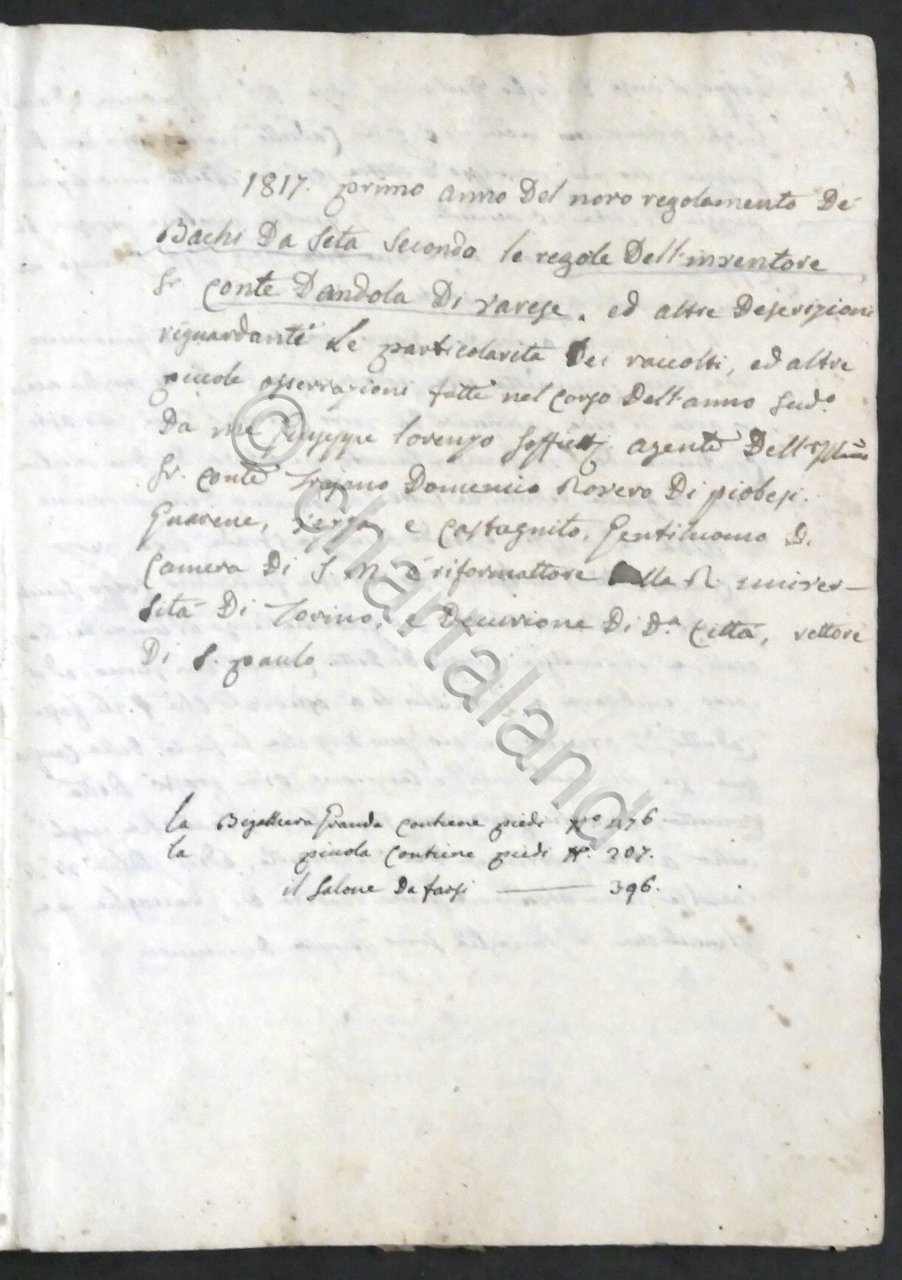 1817. primo anno Del novo regolamento De'
Bachi Da Seta Secondo le regole Dell'inventore
Sr. Conte Dandola Di Varese. ed altre Descrizioni
riguardanti Le particolarità Dei raccolti, ed altre
piccole osservazioni fatte nel corso Dell'anno Sud.o
Da me Giuseppe Lorenzo agente Dell'
Sr. Conte Trajano Domenico Rovero Di piobesi.
Guarene, e Castagnito. Gentiluomo Di
Camera Di S. M. è riformattore alla R. univer-
sità Di Torino, e Decurione Di D.a Città, rettore
Di S. paulo
la Bigattiera Granda Contiene piedi No. 1176
la picola Contiene piedi No. 207.
il Salone Da farsi — 396.
© Chartaland